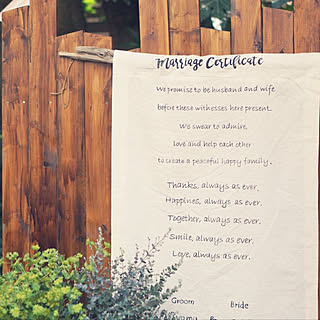 Marriage Certificate
We promise to be husband and wife
before these witnesses here present.
We swear to admire,
love and help each other
to create a peaceful happy family.
Thanks, always as ever.
Happines, always as ever.
Together, always as ever.
Smile, always as ever.
Love, always as ever.
Groom Bride